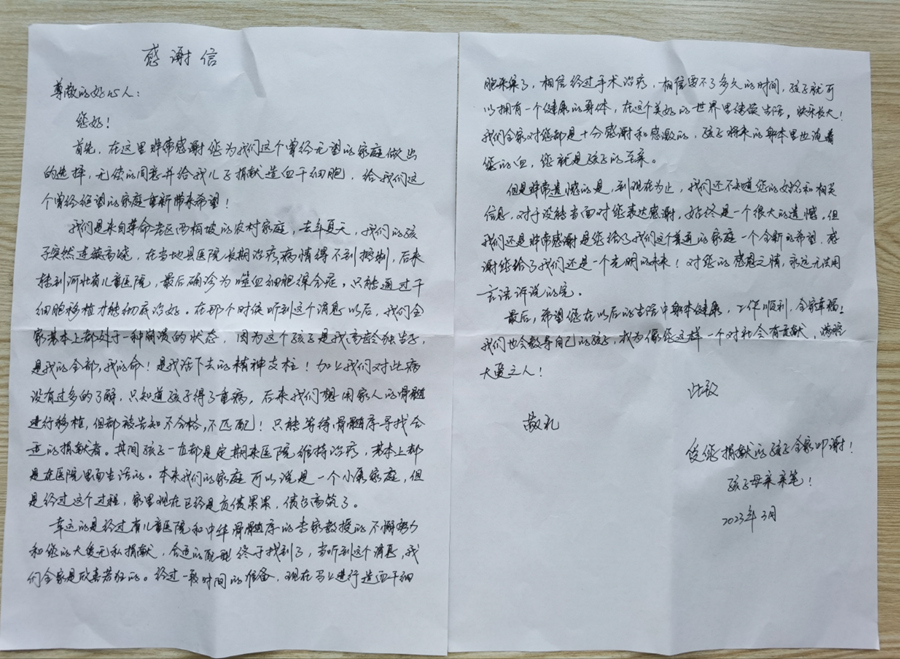 感谢信
尊敬的好心人：
您好！
首先，在这里非常感谢您为我们这个曾经无望的家庭做出
的选择，无偿的同意并给我儿子捐献造血干细胞，给我们这
个曾经绝望的家庭重新带来希望！
我们是来自革命老区西柏坡的农村家庭，去年夏天，我们的孩
子突然连续高烧，在当地县医院长期治疗病情得不到控制，后来
转到河北省儿童医院，最后确诊为噬血细胞综合症。只能通过干
细胞移植才能彻底治好。在那个时候听到这个消息以后，我们全
家基本上都处于一种崩溃的状态，因为这个孩子是我高龄独生子，
是我的全部，我的命！是我活下去的精神支柱！加上我们对此病
没有过多的了解，只知道孩子得了重病，后来我们想用家人的骨髓
进行移植，但都被告知不合格，不匹配！只能等待骨髓库寻找合
适的捐献者。其间孩子一直都是定期来医院维持治疗，基本上都
是在医院里面生活的。本来我们的家庭可以说是一个小康家庭，但
是经过这个过程，家里现在已经是负债累累，债台高筑了。
幸运的是经过省儿童医院和中华骨髓库的专家教授的不懈努力
和您的大爱无私捐献，合适的配型终于找到了，当听到这个消息，我
们全家是欣喜若狂的。经过一段时间的准备，现在马上进行造血干细
胞采集了，相信经过手术治疗，相信要不了多久的时间，孩子就可
以拥有一个健康的身体，在这个美好的世界里健康生活，快乐长大！
我们全家对您都是十分感谢和感激的，孩子将来的身体里也流着
您的血，您就是孩子的至亲。
但是非常遗憾的是，到现在为止，我们还不知道您的姓名和相关
信息，对于没能当面对您表达感谢，始终是一个很大的遗憾，但
我们还是非常感谢是您给了我们这个普通的家庭一个全新的希望，感
谢您给了我们还是一个光明的未来！对您的感恩之情，永远无法用
言语诉说的完。
最后，希望您在以后的生活中身体健康，工作顺利，全家幸福！
我们也会教导自己的孩子，成为像您这样一个对社会有贡献，
大爱之人！
此致
敬礼
受您捐献的孩子全家叩谢！
孩子母亲亲笔！
2023年3月